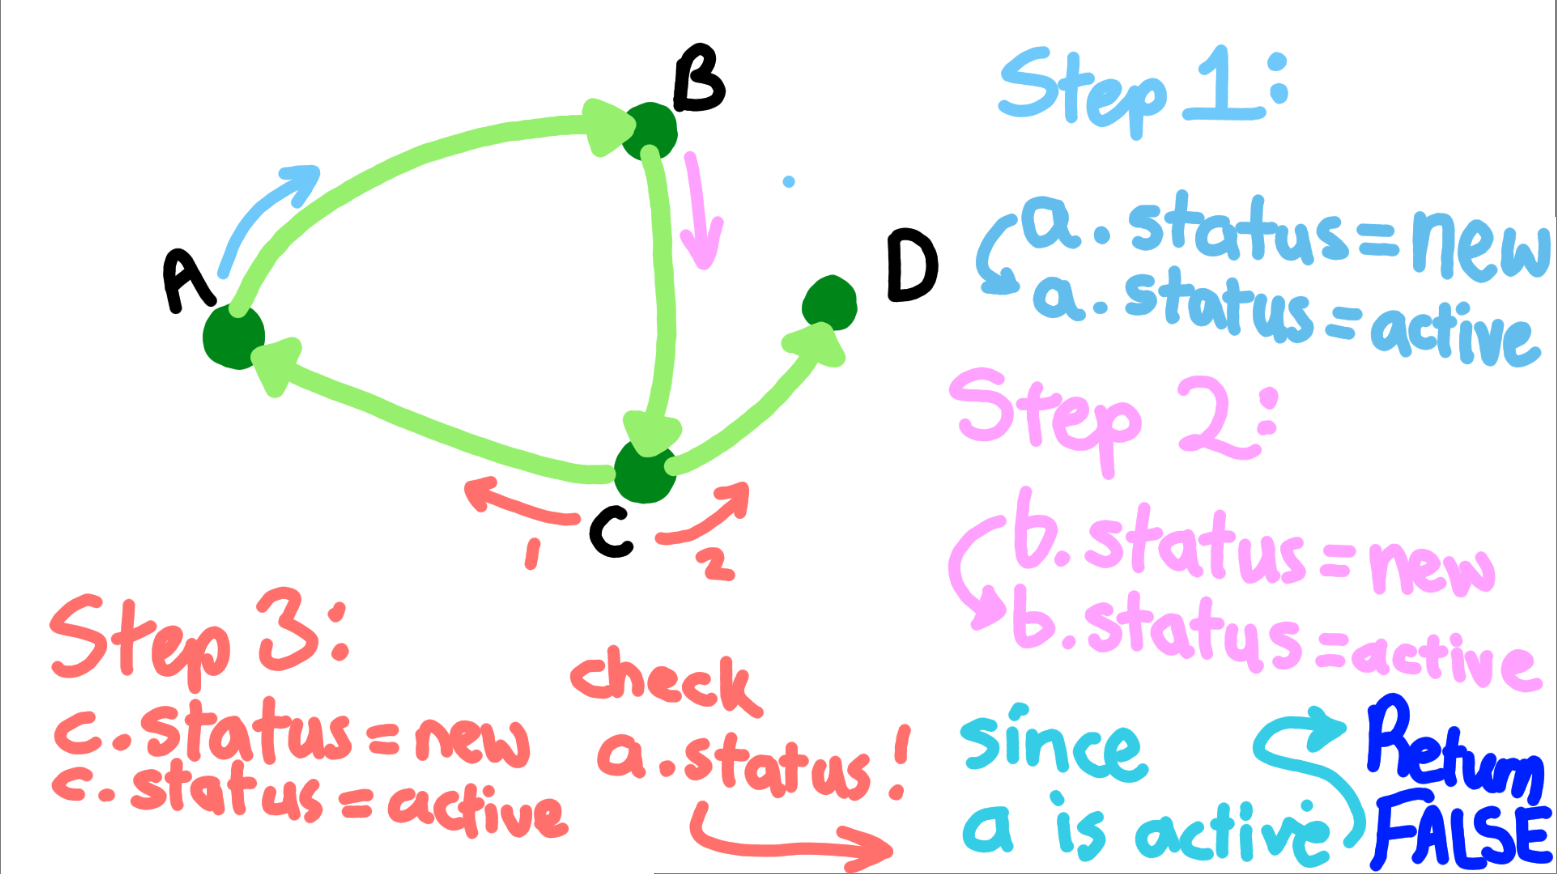 A
B
C
D
1
2
Step 1:
a.status=new
a.status=active
Step 2:
b.status=new
b.status=active
Step 3:
c.status=new
c.status=active
check
a.status!
since
a is active
Return
FALSE